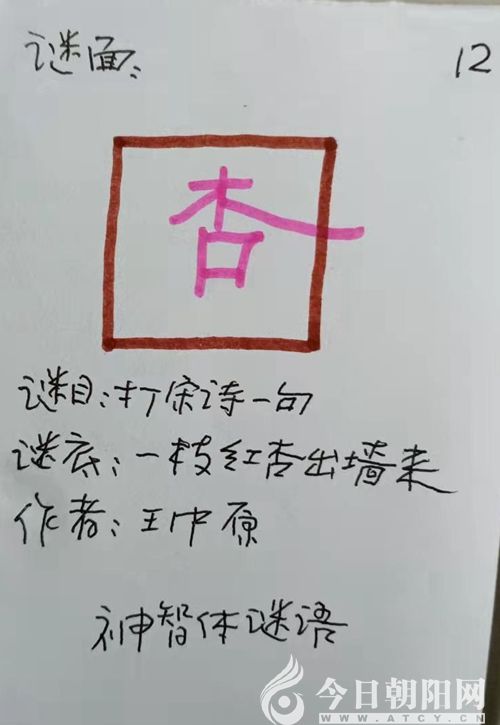 谜面: 12
杏
谜目:打宋诗一句
谜底:一枝红杏出墙来
作者:王中原
神智体谜语
今日朝阳网
WWW.ATCY.CN